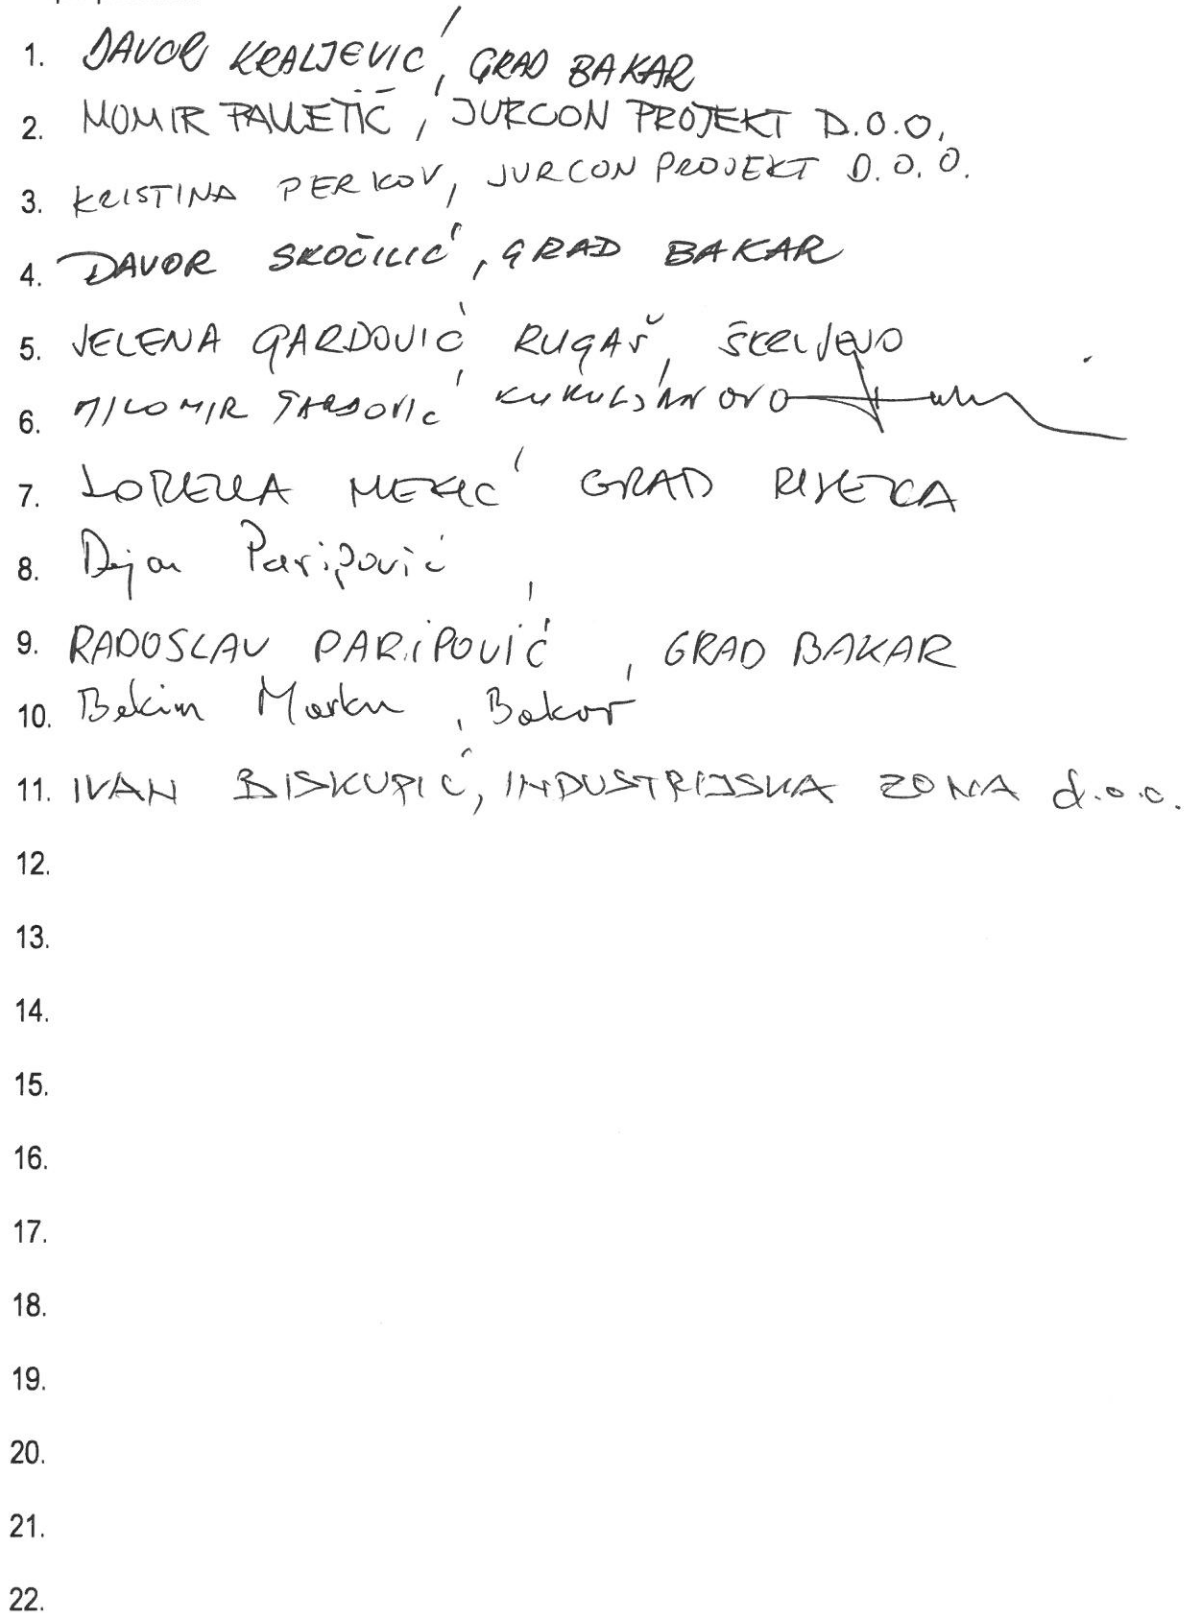 1. DAVOR KRALJEVIĆ, GRAD BAKAR
2. MOMIR PAVLETIĆ, JURCON PROJEKT D.O.O.
3. KRISTINA PERKOV, JURCON PROJEKT D.O.O.
4. DAVOR SKOČILIĆ, GRAD BAKAR
5. JELENA GARDOVIĆ RUGAŠ, ŠKRLJEVO
6. MILOMIR GARDOVIĆ KUKULJANOVO
7. GRAD RIJEKA
8. Dejan Paripović
9. RADOSLAV PARIPOVIĆ, GRAD BAKAR
10. Bekim Marku, Bakar
11. IVAN BISKUPIĆ, INDUSTRIJSKA ZONA d.o.o.
12.
13.
14.
15.
16.
17.
18.
19.
20.
21.
22.